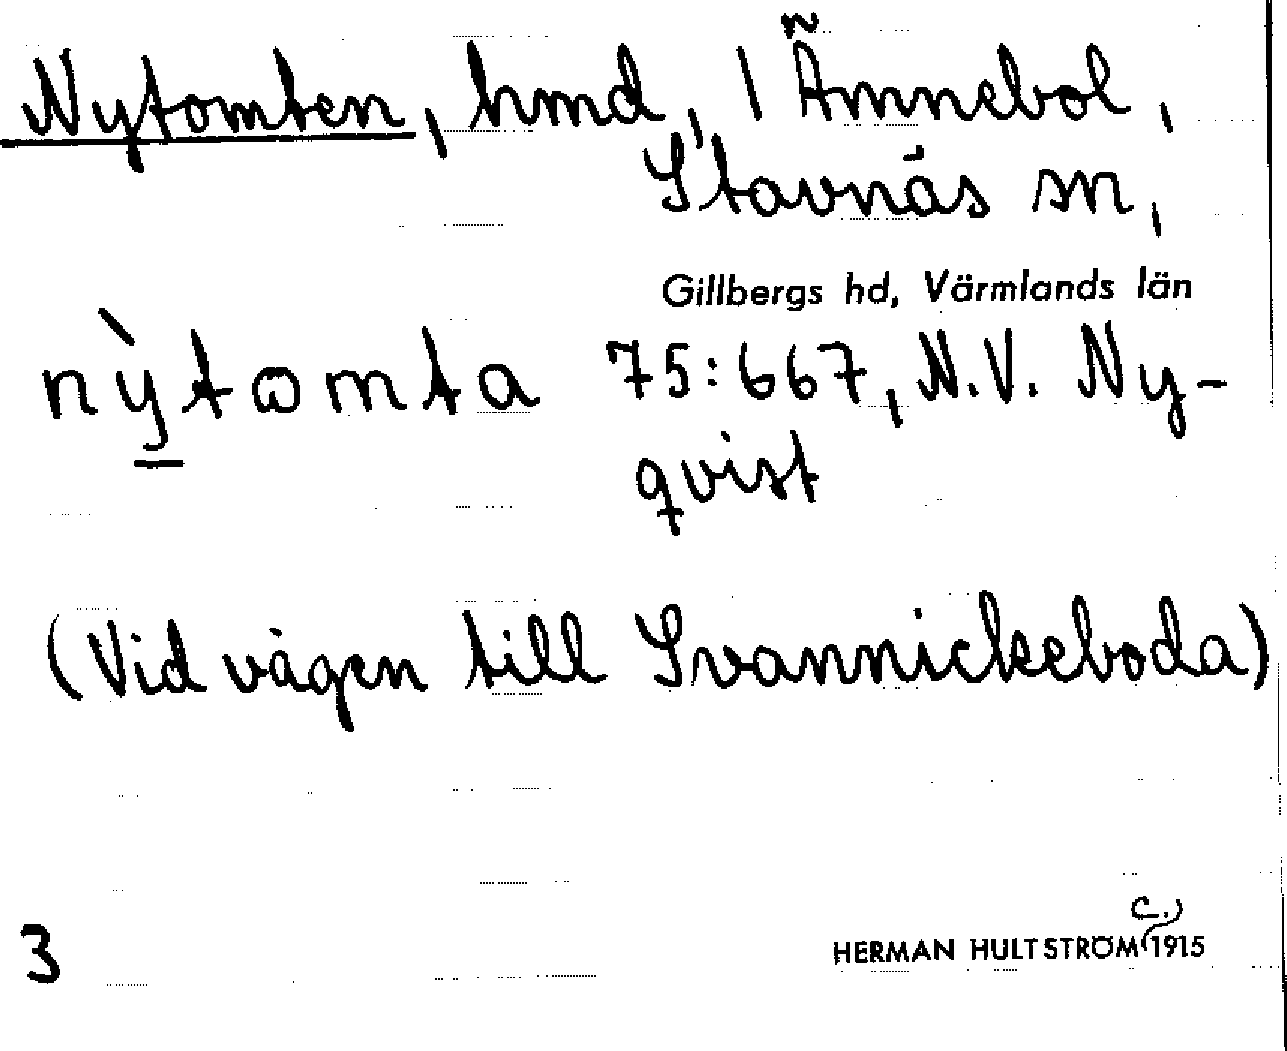 Nytomten, hmd, 1 Ämnebol,
Stavnäs sn,
Gillbergs hd, Värmlands län
nỳtomta 75:667, N.V. Ny-
qvist
(Vid vägen till Svannickeboda)
3
HERMAN HULTSTRÖM c. 1915